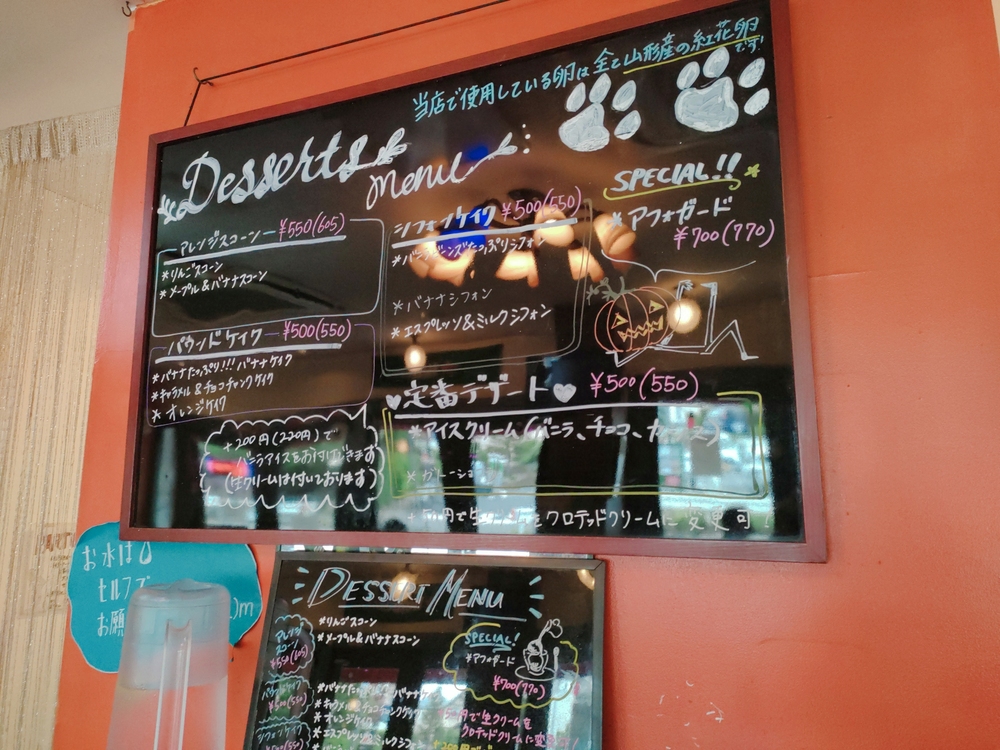 当店で使用している卵は全て山形産の紅花卵
です!
Desserts
Menu:
アレンジスコーン ¥550(605)
*りんごスコーン
*メープル&バナナスコーン
パウンドケイク ¥500(550)
*バナナたっぷり!!!バナナケイク
*キャラメル&チョコチャンクケイク
*オレンジケイク
+200円(220円)で
バニラアイスをお付けできます
(生クリームは付いております)
シフォンケイク ¥500(550)
*バニラビーンズたっぷりシフォン
*バナナシフォン
*エスプレッソ&ミルクシフォン
SPECIAL!!
*アフォガード
¥700(770)
♥定番デザート♥ ¥500(550)
*アイスクリーム(バニラ、チョコ、
*ガトーショ
クロテッドクリームに変更可!
お水は
セルフで
お願
)m
DESSERT MENU
アレンジ
スコーン
¥550(605)
*りんごスコーン
*メープル&バナナスコーン
SPECIAL!
*アフォガード
¥700(770)
パウンドケイク
¥500(550)
*バナナたっぷり バナナケイク
*キャラメル&チョコチャンクケイク
*オレンジケイク
シフォンケイク
*エスプレッソ&ミルクシフォン
円で生クリームを
クロテッドクリームに変更